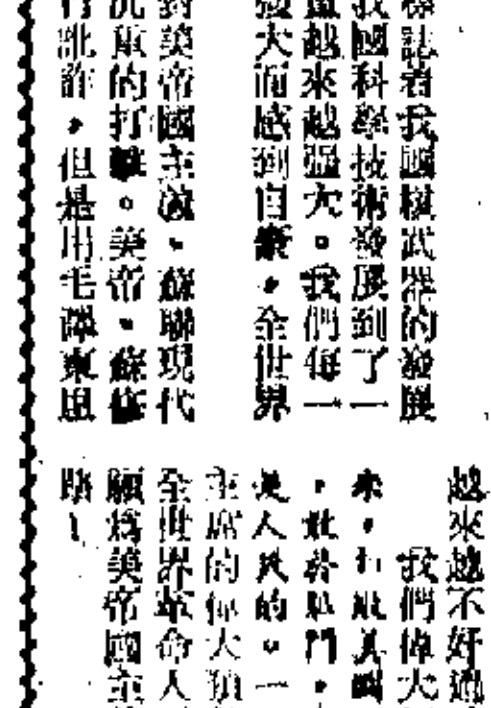 標誌着我國核武器的發展
我國科學技術發展到了一
量越來越强大。我們每一
强大而感到自豪,全世界
對美帝國主義、蘇聯現代
沉重的打擊。美帝、蘇修
行訛詐,但是用毛澤東思
越來越不好過
我們偉大
來,打敗美
,敢於鬥,
是人民的。一
主席的偉大領
全世界革命人
願爲美帝國主